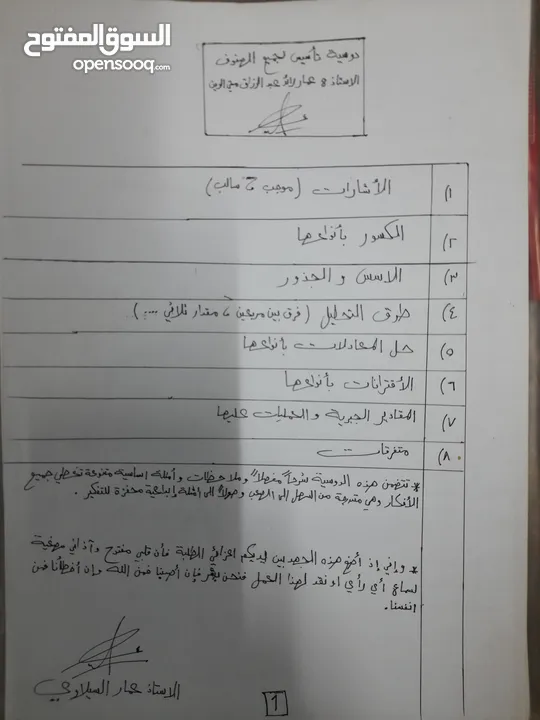 السوق المفتوح
opensooq.com
دوسية تأسيس لجميع الصفوف
الاستاذ : عمار عبد الرزاق
(١ الأشارات (موجب ، سالب)
(٢ الكسور بأنواعها
(٣ الاسس والجذور
(٤ طرق التحليل (فرق بين مربعين ، مقدار ثلاثي ....)
(٥ حل المعادلات بأنواعها
(٦ الأقترانات بأنواعها
(٧ المقادير الجبرية والعمليات عليها
(٨ متفرقات
* تتضمن هذه الدوسية شرحاً مفصلاً وملاحظات وأمثلة اساسية متنوعة تغطي جميع
الأفكار وهي متدرجة من السهل الى الصعب وصولاً الى امثلة إبداعية محفزة للتفكير .
* وإني إذ أضع هذه الجهد بين يديكم اعزائي الطلبة فأن قلبي مفتوح وآذاني مصغية
لسماع أي رأي او نقد لهذا العمل فنحن بشر فإن أصبنا فمن الله وإن أخطأنا فمن
انفسنا .
الاستاذ عمار السيلاوي
1